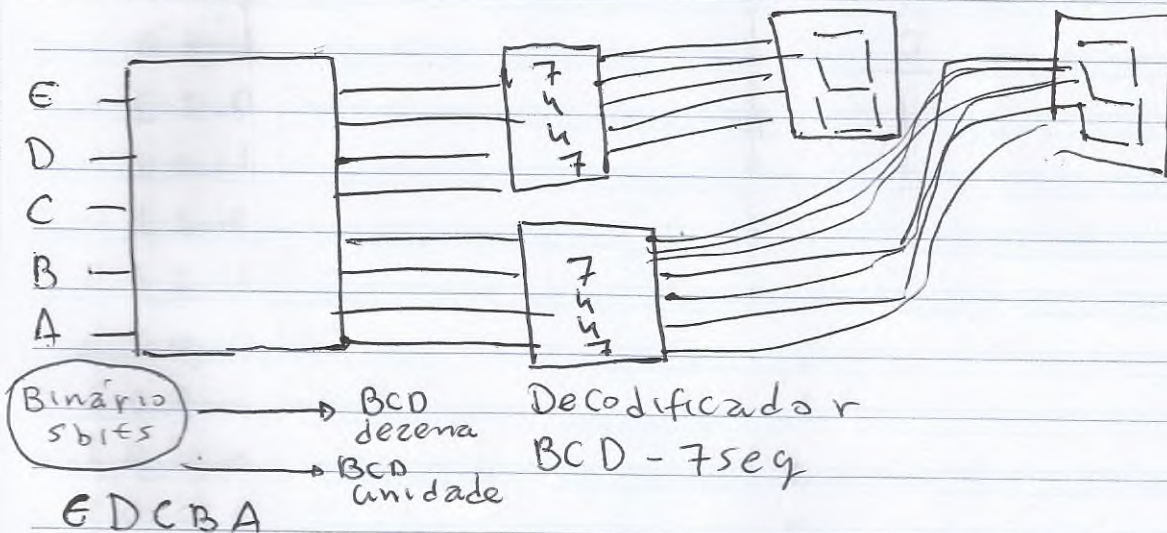 E
D
C
B
A
7
4
4
7
7
4
4
7
Binário
5bits
BCD
dezena
BCD
unidade
Decodificador
BCD - 7seg
EDCBA